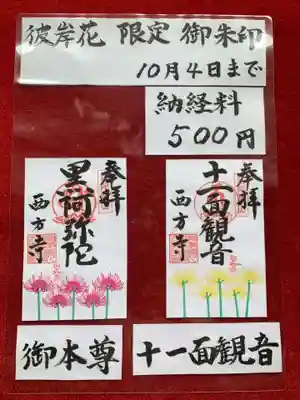 彼岸花 限定 御朱印
10月4日まで
納経料
500円
奉拝
十一面観音
西方寺
奉拝
黒衙弥陀
西方寺
御本尊
十一面観音